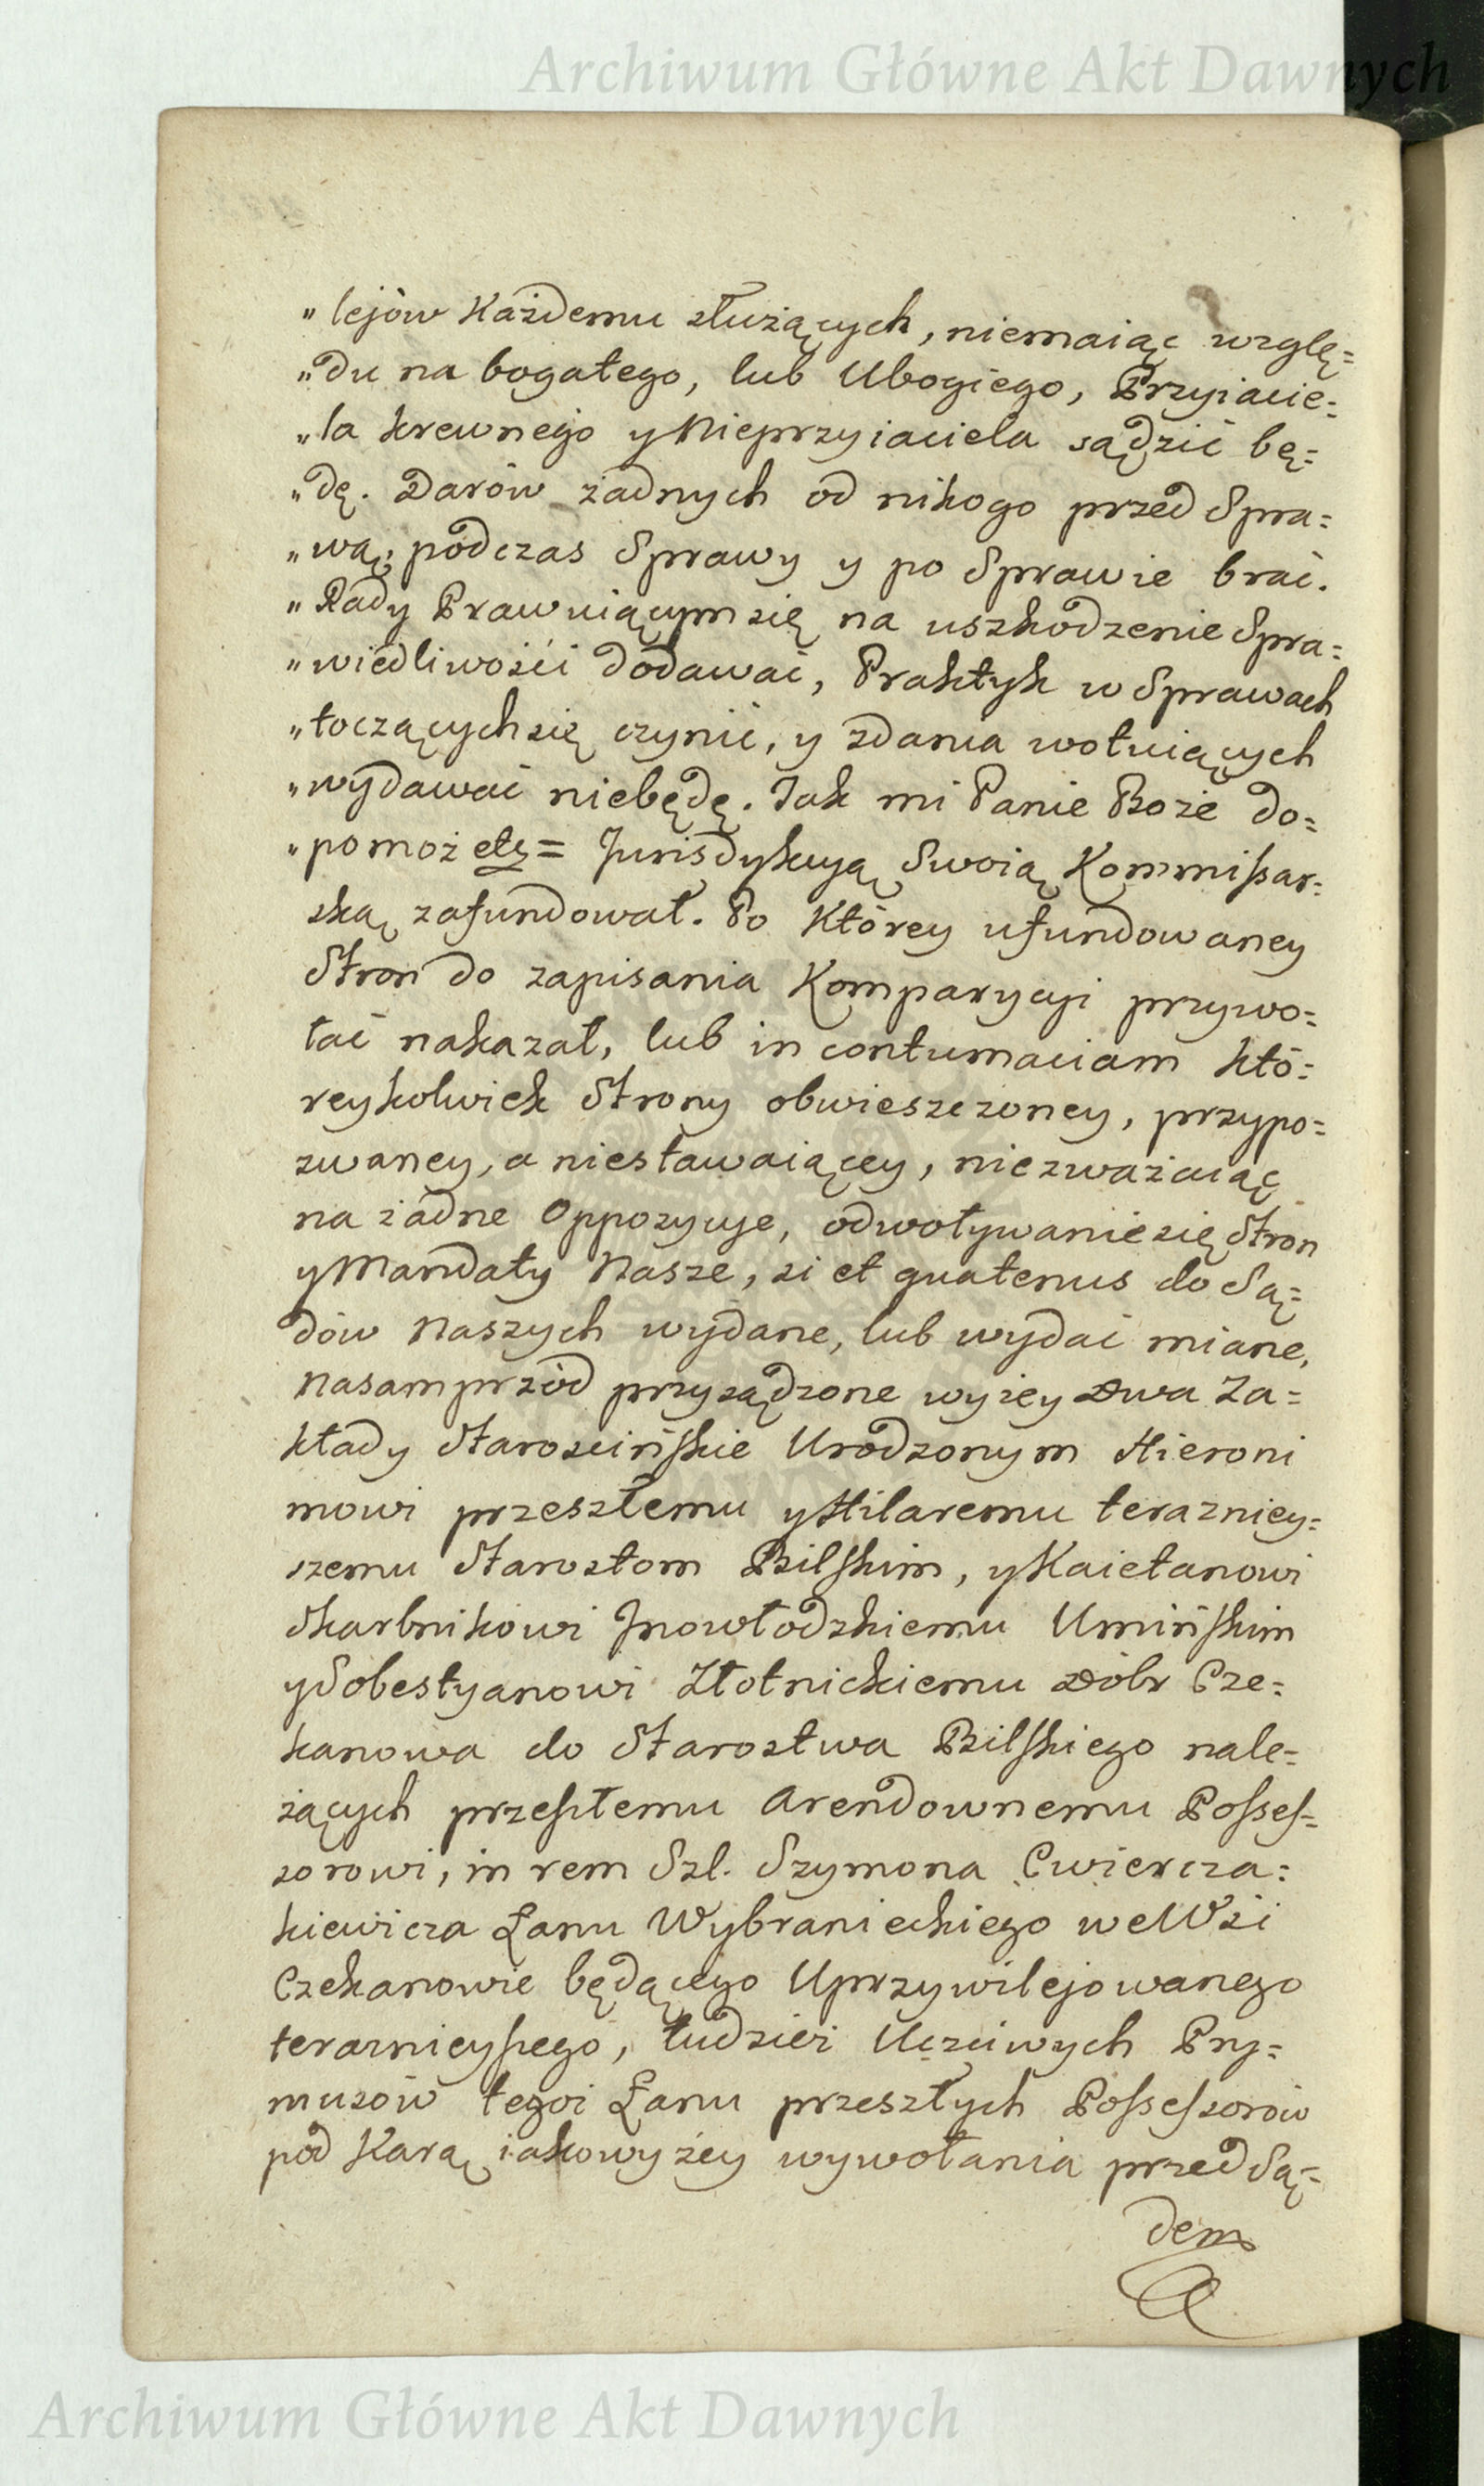 Archiwum Główne Akt Dawnych
„lejów Każdemu służących, niemaiąc wzglę=
„du na bogatego, lub Ubogiego, Przyiacie=
„la krewnego y Nieprzyiaciela sądzić bę=
„dę. Darów żadnych od nikogo przed Spra=
„wą, podczas Sprawy y po Sprawie brać.
„Rady Prawuiącym się na uszkodzenie Spra=
„wiedliwości dodawać, Praktyk w Sprawach
„toczących się czynić, y zdania wotuiących
„wydawać niebędę. Tak mi Panie Boże do=
„pomoż etc= Jurisdykcyą Swoią Kommissar=
ską zafundował. Po Którey ufundowaney
Stron do zapisania Komparycyi przywo=
łać nakazał, lub in contumaciam któ=
reykolwiek Strony obwieszczoney, przypo=
zwaney, a niestawaiącey, niezważaiąc
na żadne Oppozycye, odwoływanie się Stron
y Mandaty Nasze, si et quatenus do Są=
dów Naszych wydane, lub wydać miane,
Nasamprzód przysądzone wyżey Dwa Za=
kłady Starościńskie Urodzonym Hieroni
mowi przeszłemu y Hilaremu teraźniey=
szemu Starostom Bilskim, y Kaietanowi
Skarbnikowi Jnowłodzkiemu Umińskim
y Sobestyanowi Złotnickiemu Dóbr Cze=
kanowa do Starostwa Bilskiego nale=
żących przeszłemu Arendownemu Posses=
sorowi, in rem Szl. Szymona Cwiercza=
kiewicza Łanu Wybranieckiego we Wsi
Czekanowie będącego Uprzywilejowanego
teraznieyszego, tudzież Uczciwych Pry=
musów tegoż Łanu przeszłych Possessorów
pod Karą iakowyżey wywołania przed Są=
dem
Archiwum Główne Akt Dawnych